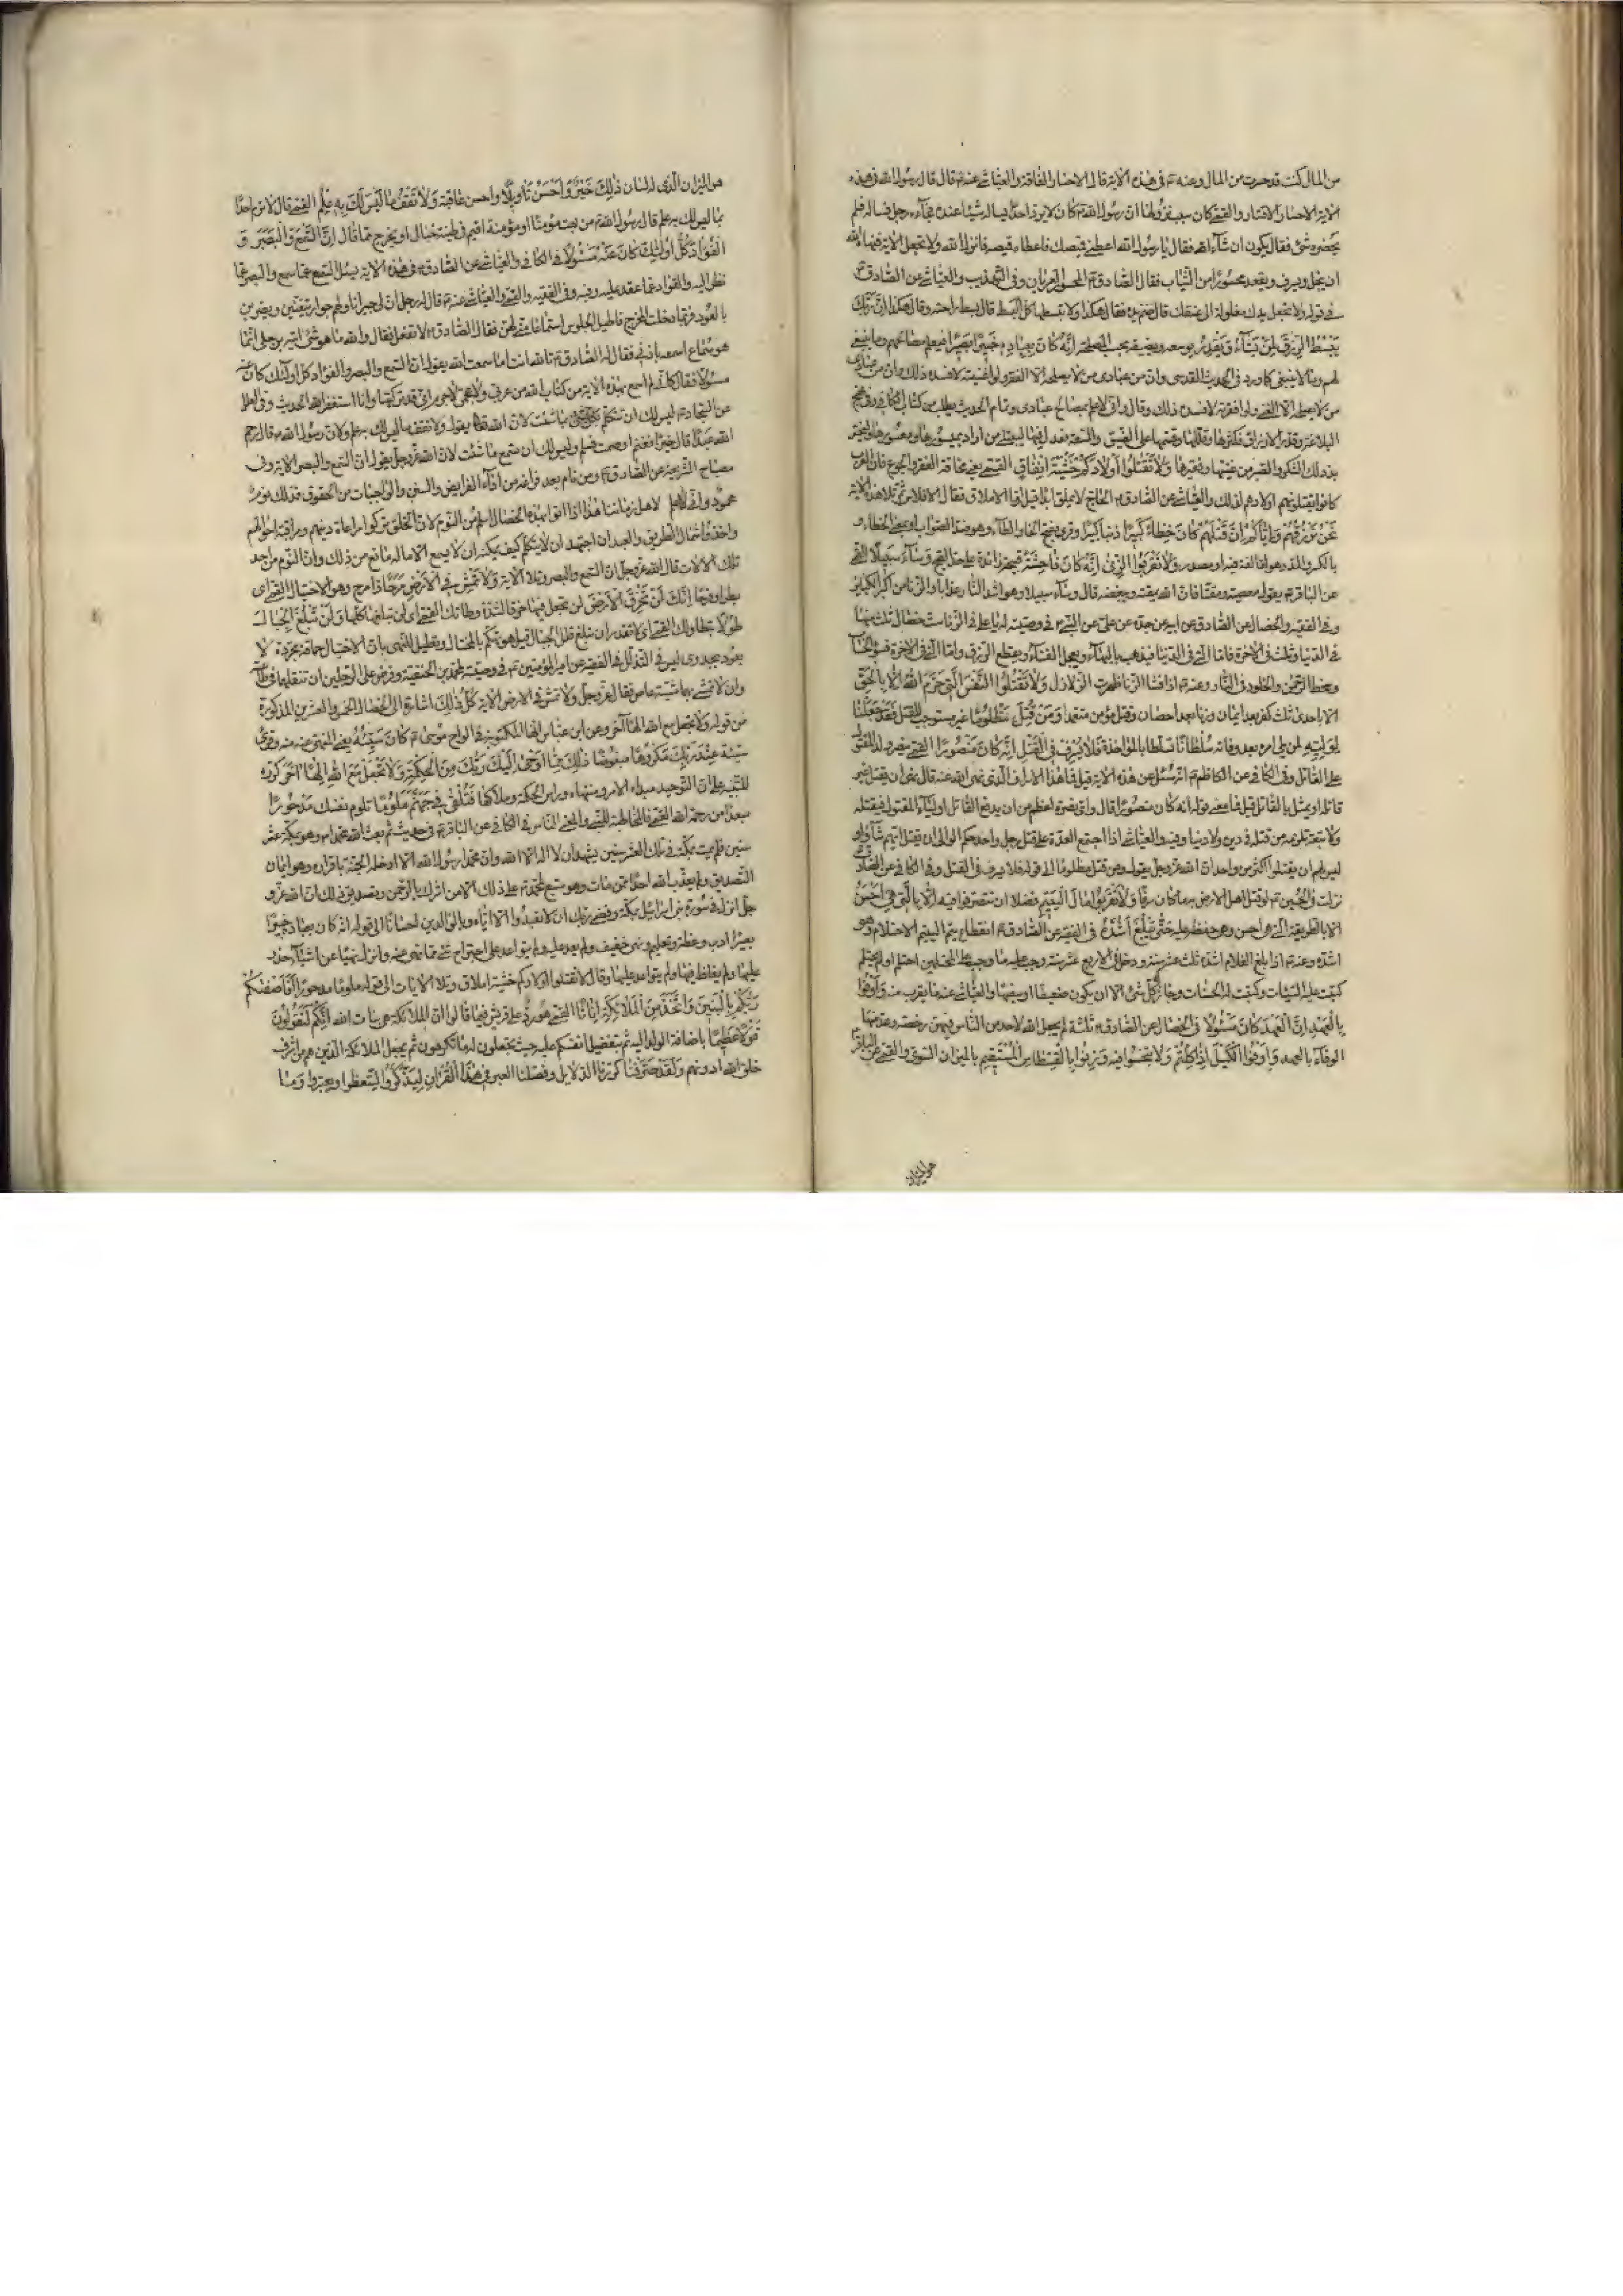 من المال كنت قد حسرت من المال وعنه ع في هذه الاية قال الاحسار الفاقة والعياشي عنه ع قال قال رسول الله في هذه
الاية الاحسار الاقتار والقمي كان سبب نزولها ان رسول الله ص كان لا يرد احدا يساله شيئا عنده فجاءه رجل فساله فلم
يحضره شئ فقال يكون ان شاء الله فقال يا رسول الله اعطني قميصك فاعطاه قميصه فانزل الله ولا تجعل الاية فنهاه الله
ان يبخل ويسرف ويقعد محسورا من الثياب فقال الصادق ع المحسور العريان وفي التهذيب والعياشي عن الصادق ع
في قوله ولا تجعل يدك مغلولة الى عنقك قال ضم يده فقال هكذا ولا تبسطها كل البسط قال بسط راحته وقال هكذا ان ربك
يبسط الرزق لمن يشاء ويقدر يوسعه ويضيقه بحسب المصلحة انه كان بعباده خبيرا بصيرا فيعلم مصالحهم وما ينبغي
لهم وما لا ينبغي كما ورد في الحديث القدسي وان من عبادي من لا يصلحه الا الفقر ولو اغنيته لافسده ذلك وان من عبادي
من لا يصلحه الا الغنى ولو افقرته لافسده ذلك وقال واني لاعلم بمصالح عبادي وتمام الحديث يطلب من كتاب الكافي وفي نهج
البلاغة وقدر الارزاق فكثرها وقللها وقسمها على الضيق والسعة فعدل فيها ليبتلي من اراد بميسورها ومعسورها وليختبر
بذلك الشكر والصبر من غنيها وفقيرها ولا تقتلوا اولادكم خشية املاق القمي يعني مخافة الفقر والجوع فان العرب
كانوا يقتلون اولادهم لذلك والعياشي عن الصادق ع الحاج لا يملق ابدا قيل وما الاملاق فقال الافلاس ثم تلا هذه الاية
نحن نرزقهم واياكم ان قتلهم كان خطأ كبيرا ذنبا كبيرا وقرئ بفتح الخاء والطاء وهو ضد الصواب او بمعنى الخطاء و
بالكسر والمد وهو اما لغة فيه او مصدر ولا تقربوا الزنى انه كان فاحشة قبيحة زائدة على حد القبح وساء سبيلا القمي
عن الباقر ع يقول معصية ومقتا فان الله يمقته ويبغضه قال وساء سبيلا وهو اشد النار عذابا والزنا من اكبر الكبائر
وفي الفقيه والخصال عن الصادق عن ابيه عن جده عن علي عن النبي ص في وصيته له يا علي في الزنا ست خصال ثلث منها
في الدنيا وثلث في الاخرة فاما التي في الدنيا فيذهب بالبهاء ويعجل الفناء ويقطع الرزق واما التي في الاخرة فسوء الحساب
وسخط الرحمن والخلود في النار وعنه ع اذا فشا الزنا ظهرت الزلازل ولا تقتلوا النفس التي حرم الله الا بالحق
الا باحدى ثلث كفر بعد ايمان وزنا بعد احصان وقتل مؤمن متعمدا ومن قتل مظلوما غير مستوجب للقتل فقد جعلنا
لوليه لمن يلي امره بعد وفاته سلطانا تسلطا بالمؤاخذة فلا يسرف في القتل انه كان منصورا القمي
على القاتل وفي الكافي عن الكاظم ع انه سئل عن هذه الاية قيل فما هذا الاسراف الذي نهى الله عنه قال نهى ان يقتل غير
قاتله او يمثل بالقاتل قيل فما معنى قوله انه كان منصورا قال واي نصرة اعظم من ان يدفع القاتل الى اولياء المقتول فيقتله
ولا تبعة تلزمه من قتله في دين ولا دنيا وفيه والعياشي اذا اجتمع العدة على قتل رجل واحد حكم الوالي ان يقتل ايهم شاؤا و
ليس لهم ان يقتلوا اكثر من واحد ان الله عز وجل يقول ومن قتل مظلوما الى قوله فلا يسرف في القتل وفي الكافي عن الصادق ع
نزلت في الحسين ع لو قتل اهل الارض به ما كان سرفا ولا تقربوا مال اليتيم فضلا ان تتصرفوا فيه الا بالتي هي احسن
الا بالطريقة التي هي احسن وهي حفظه عليه حتى يبلغ اشده في الفقيه عن الصادق ع انقطاع يتم اليتيم الاحتلام وهو
اشده وعنه ع اذا بلغ الغلام اشده ثلث عشر سنة ودخل في الاربع عشر سنة وجب عليه ما وجب على المحتلمين احتلم او لم يحتلم
كتبت عليه السيئات وكتبت له الحسنات وجاز له كل شئ الا ان يكون ضعيفا او سفيها والعياشي عنه ما يقرب منه واوفوا
بالعهد ان العهد كان مسئولا في الخصال عن الصادق ع ثلثة لم يجعل الله لاحد من الناس فيهن رخصة وعد منها
الوفاء بالعهد واوفوا الكيل اذا كلتم ولا تبخسوا فيه وزنوا بالقسطاس المستقيم بالميزان السوي والقمي عن الباقر
هو الميزان
هو الميزان الذي له لسان ذلك خير واحسن تاويلا واحسن عاقبة ولا تقف ما ليس لك به علم القمي قال لا ترم احدا
بما ليس لك به علم قال رسول الله ص من بهت مؤمنا او مؤمنة اقيم في طينة خبال او يخرج مما قال ان السمع والبصر و
الفؤاد كل اولئك كان عنه مسئولا في الكافي والعياشي عن الصادق ع في هذه الاية يسئل السمع عما سمع والبصر عما
نظر اليه والفؤاد عما عقد عليه وفيه وفي الفقيه والقمي والعياشي عنه ع قال له رجل ان لي جيرانا ولهم جوار يتغنين ويضربن
بالعود فربما دخلت المخرج فاطيل الجلوس استماعا مني لهن فقال الصادق ع لا تفعل فقال والله ما هو شئ اتيه برجلي انما
هو سماع اسمعه باذني فقال له الصادق ع تالله انت اما سمعت الله يقول ان السمع والبصر والفؤاد كل اولئك كان عنه
مسئولا فقال كاني لم اسمع بهذه الاية من كتاب الله من عربي ولا عجمي لا جرم اني قد تركتها وانا استغفر الله الحديث وفي العلل
عن السجاد ع ليس لك ان تتكلم بما شئت لان الله تعالى يقول ولا تقف ما ليس لك به علم ولان رسول الله ص قال رحم
الله عبدا قال خيرا فغنم او صمت فسلم وليس لك ان تسمع ما شئت لان الله عز وجل يقول ان السمع والبصر الاية وفي
مصباح الشريعة عن الصادق ع ومن نام بعد فراغه من اداء الفرايض والسنن والواجبات من الحقوق فذلك نوم
محمود واني لا اعلم لاهل زماننا هذا اذا اتوا بهذه الخصال اسلم من النوم لان الخلق تركوا مراعاة دينهم ومراقبة احوالهم
واخذوا شمال الطريق والعبد ان اجتهد ان لا يتكلم كيف يمكنه ان لا يسمع الا ما له مانع من ذلك وان النوم من احد
تلك الالات قال الله عز وجل ان السمع والبصر وتلا الاية ولا تمش في الارض مرحا ذا مرح وهو الاختيال القمي اي
بطرا وفرحا انك لن تخرق الارض لن تجعل فيها خرقا لشدة وطاتك القمي اي لم تبلغها كلها ولن تبلغ الجبال
طولا بتطاولك القمي اي لا تقدر ان تبلغ قلل الجبال قيل هو تهكم بالمختال وتعليل للنهي بان الاختيال حماقة مجردة لا
يعود بجدوى ليس في التذلل في الفقيه عن امير المؤمنين ع في وصيته لمحمد بن الحنفية وفرض على الرجلين ان تنقلهما في طاعته
وان لا تمشي بهما مشية عاص فقال عز وجل ولا تمش في الارض الاية كل ذلك اشارة الى الخصال الخمس والعشرين المذكورة
من قوله ولا تجعل مع الله الها آخر وعن ابن عباس انها المكتوبة في الواح موسى ع كان سيئه يعني المنهي عنه منه وقرئ
سيئة عند ربك مكروها مبغوضا ذلك مما اوحى اليك ربك من الحكمة ولا تجعل مع الله الها اخر كرره
للتنبيه على ان التوحيد مبدء الامر ومنتهاه وراس الحكمة وملاكها فتلقى في جهنم ملوما تلوم نفسك مدحورا
مبعدا من رحمة الله القمي فالمخاطبة للنبي والمعنى للناس في الكافي عن الباقر ع في حديث ثم بعث الله محمدا ص وهو بمكة عشر
سنين فلم يمت بمكة في تلك العشر سنين يشهد ان لا اله الا الله وان محمدا رسول الله الا ادخله الجنة باقراره وهو ايمان
التصديق ولم يعذب الله احدا ممن مات وهو متبع لمحمد ص على ذلك الا من اشرك بالرحمن وتصديق ذلك ان الله عز و
جل انزل في سورة بني اسرائيل بمكة وقضى ربك ان لا تعبدوا الا اياه وبالوالدين احسانا الى قوله انه كان بعباده خبيرا
بصيرا ادب وعظة وتعليم ونهي خفيف ولم يعد عليه ولم يتواعد على اجتراح شئ مما نهى عنه وانزل نهيا عن اشياء حذر
عليها ولم يغلظ فيها ولم يتواعد عليها وقال لا تقتلوا اولادكم خشية املاق وتلا الايات الى قوله ملوما مدحورا افاصفيكم
ربكم بالبنين واتخذ من الملائكة اناثا القمي هو رد على قريش فيما قالوا ان الملائكة هي بنات الله انكم لتقولون
قولا عظيما باضافة الولد اليه ثم بتفضيل انفسكم عليه حيث تجعلون له ما تكرهون ثم بجعل الملائكة الذين هم من اشرف
خلق الله ادونهم ولقد صرفنا كررنا الدلايل وفصلنا العبر في هذا القران ليذكروا ليتعظوا ويعتبروا وما